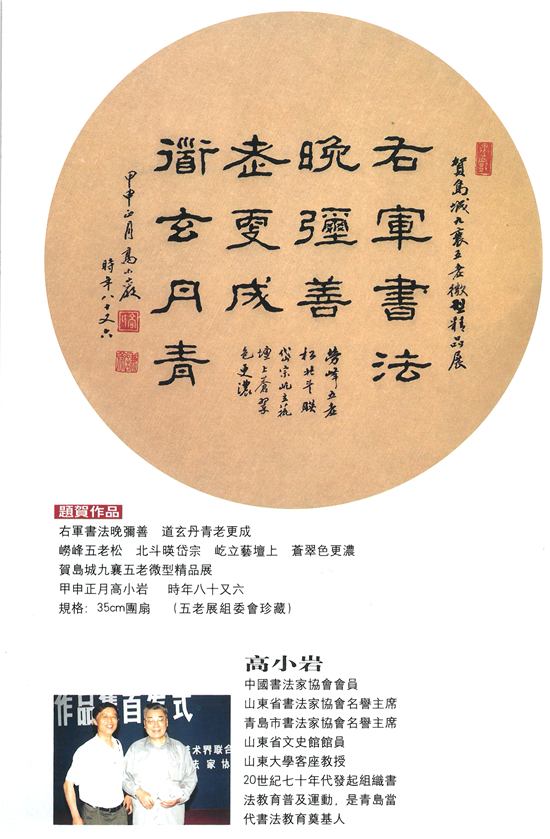 賀島城九襄五老微型精品展
右軍書法
晚彌善
老更成
衜玄丹青
勞峰五老
松北斗暎
岱宗屹立藝
壇上蒼翠
色更濃
甲申正月高小巖
時年八十又六
題賀作品
右軍書法晚彌善 道玄丹青老更成
嶗峰五老松 北斗暎岱宗 屹立藝壇上 蒼翠色更濃
賀島城九襄五老微型精品展
甲申正月高小岩 時年八十又六
規格：35cm團扇 （五老展組委會珍藏）
高小岩
中國書法家協會會員
山東省書法家協會名譽主席
青島市書法家協會名譽主席
山東省文史館館員
山東大學客座教授
20世紀七十年代發起組織書
法教育普及運動，是青島當
代書法教育奠基人
作品集首发式
术界联合
法家协